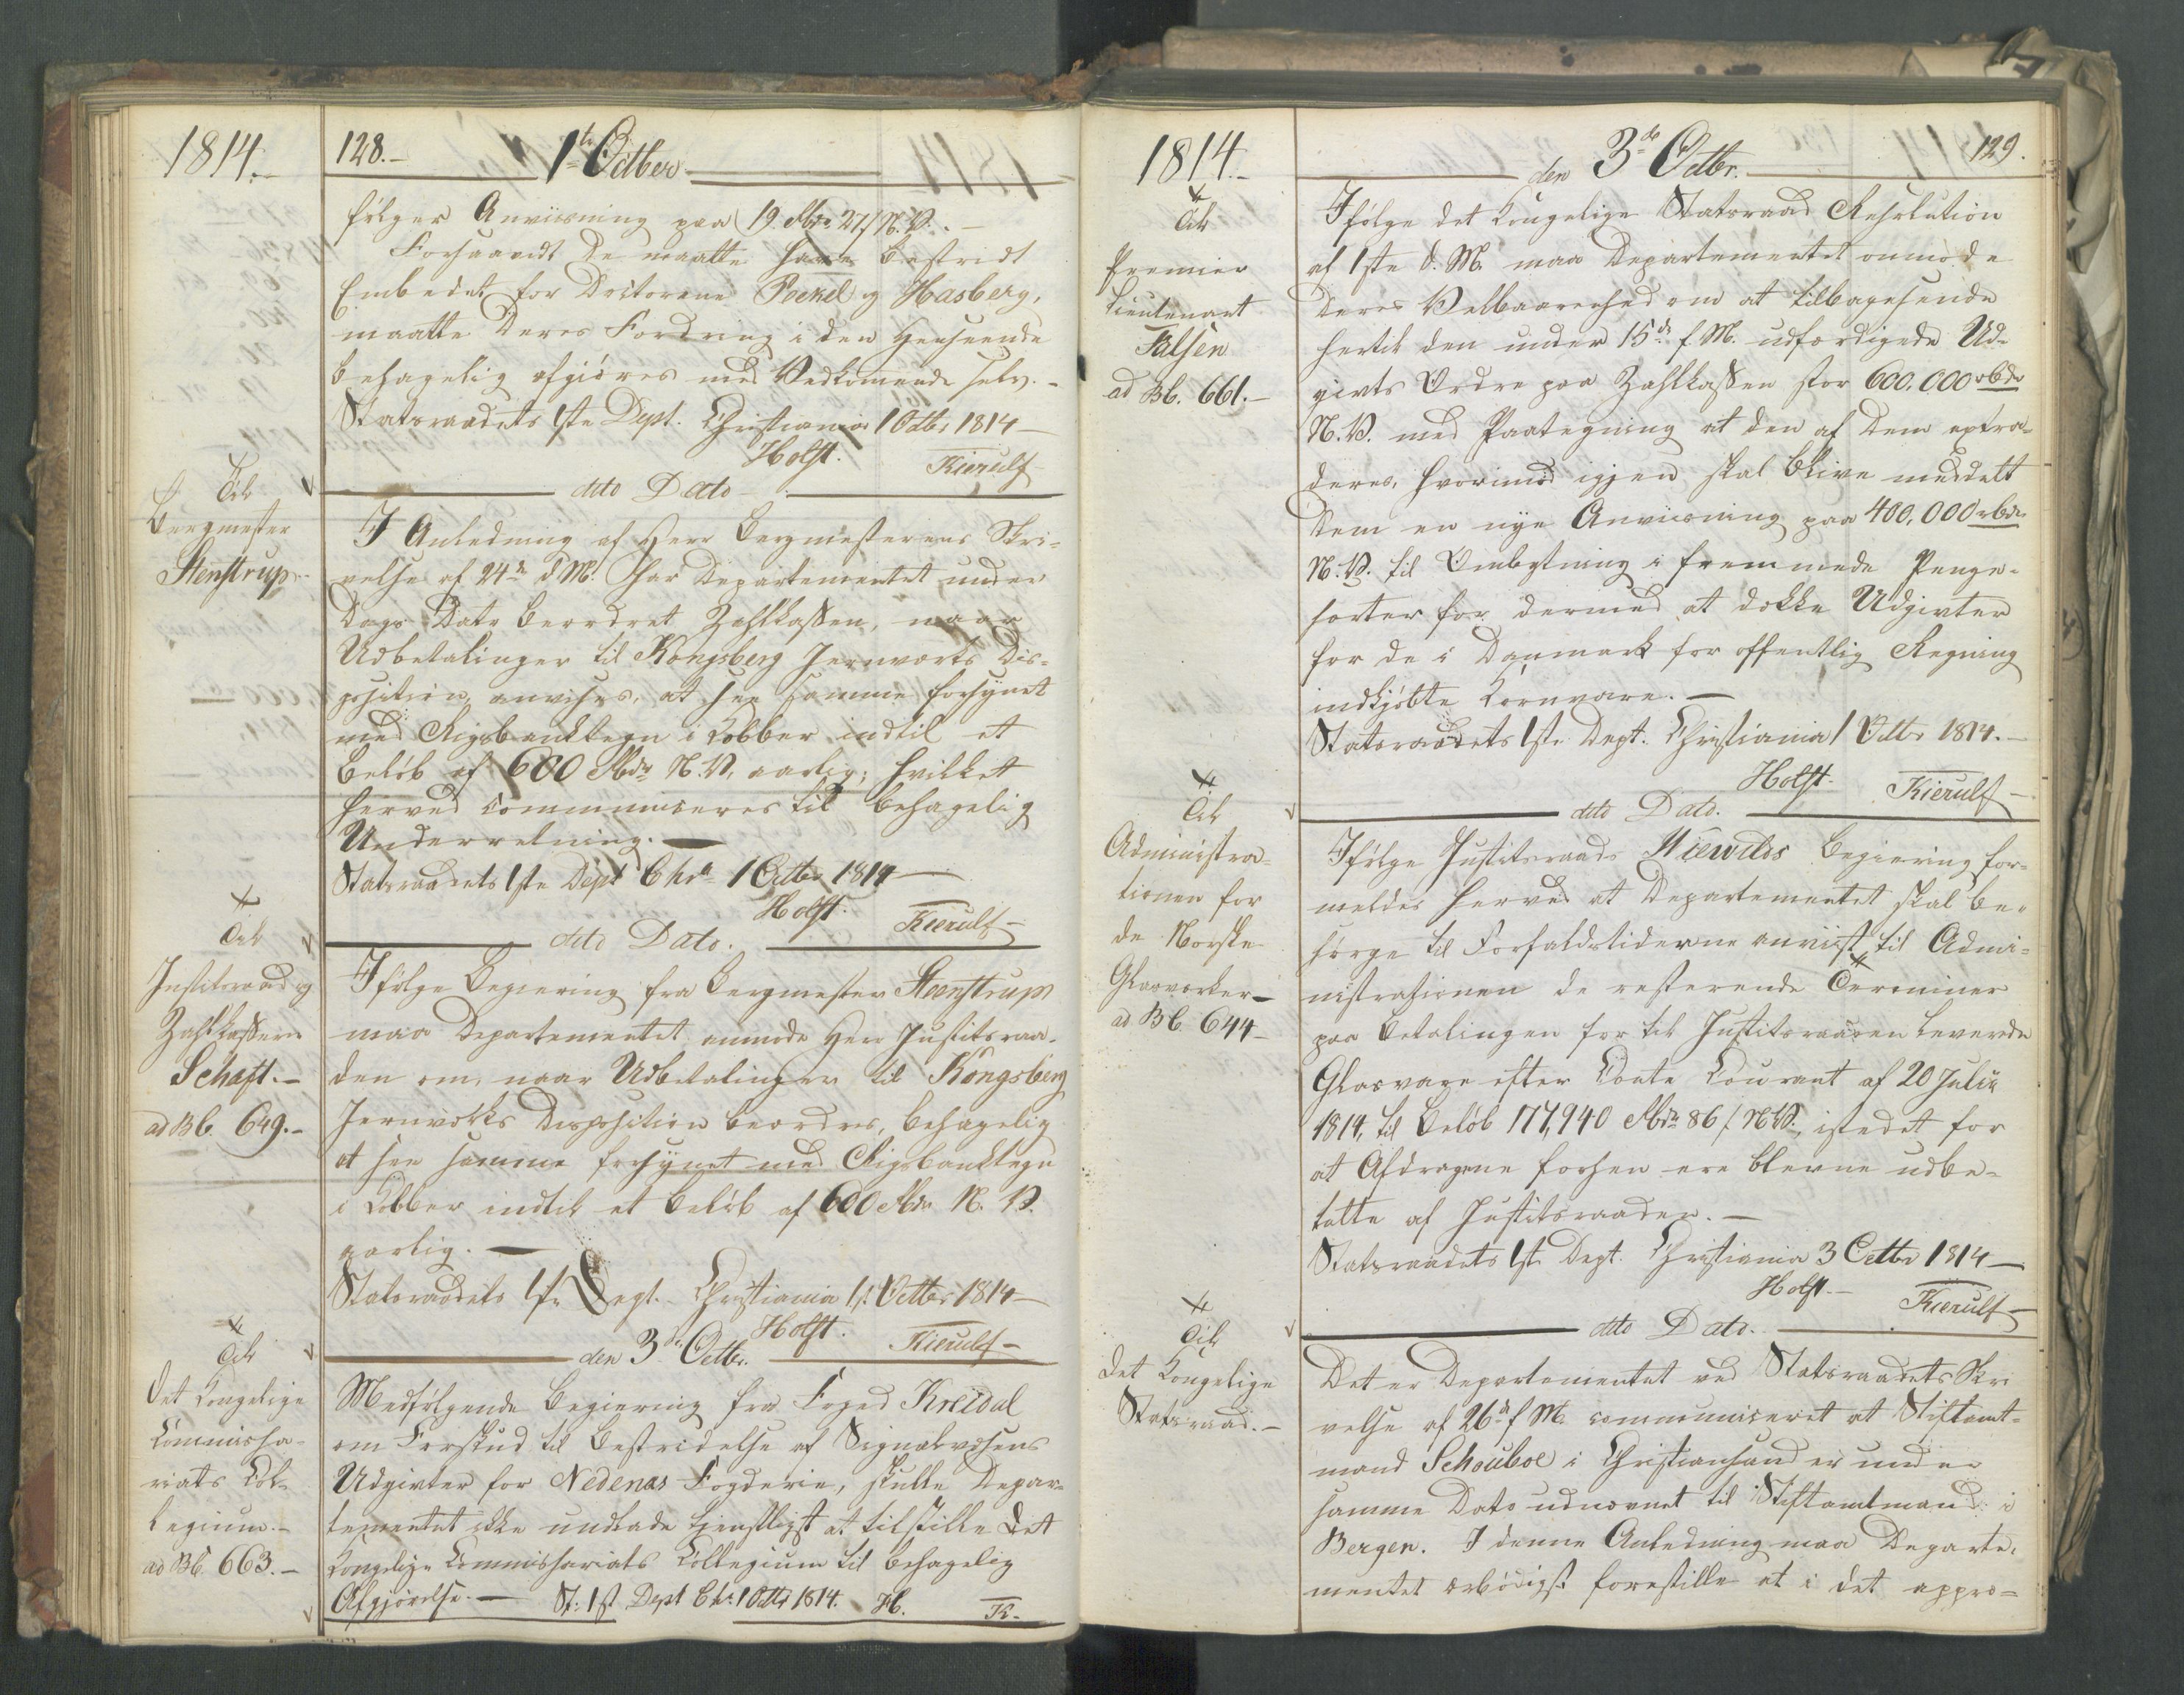 1814.-
128.-
1te Octber
følger Anviisning paa 19 Rbdr 27 s N.V. -
Forsaavidt De maatte have bestridt
Embedet for Doctorene Pockel og Hasberg,
maatte Deres Fordring i den Henseende
behagelig afgiöres med Vedkommende selv. -
Statsraadets 1ste Dept. Christiania 1 Octbr 1814 -
Holst. Kierulf
Til
Bergmester
Stenstrup.
dito Dato -
I Anledning af Herr Bergmesterens Skri-
velse af 24de d. M. har Departementet under
Dags Dato beordret Zahlkassen, naar
Udbetalinger til Kongsberg Jernværks Dis-
position anvises, at see samme forsynet
med Rigsbanktegn i Kobber indtil et
Beløb af 600 Rbdr N.V. aarlig; hvilket
herved communiceres til behagelig
Underretning. -
Statsraadets 1ste Dept Chra 1 Octbr 1814 -
Holst. Kierulf -
Til
Justitsraad og
Zahlkasserer
Schaft. -
ad Bb. 649. -
dito Dato.
Ifølge Begiering fra Bergmester Steenstrup
maa Departementet anmode Herr Justitsraa-
den om, naar Udbetalinger til Kongsberg
Jernværks Disposition beordres, behagelig
at see samme forsynet med Rigsbanktegn
i Kobber indtil et Beløb af 600 Rbdr N.V.
aarlig. -
Statsraadets 1ste Dept. Christiania 1st Octbr 1814 -
Holst. Kierulf -
Til
Det Kongelige
Commissa-
riats Col-
legium. -
ad Bb. 663. -
den 3de Octbr.
Medfølgende Begiering fra Foged Kreidal
om Forskud til Bestridelse af Signalvæsens
Udgivter for Nedenæs Fogderie, skulle Depar-
tementet ikke undlade tjenstligst at tilstille Det
Kongelige Commissariats Collegium til behagelig
Afgjörelse. - St: 1st Dept Chr: 1 Octbr 1814. H. K. -
1814.-
den 3de Octbr.
129.
Til
Premier
Lieutenant
Falsen
ad Bb. 661. -
Ifølge det Kongelige Statsraad Resolution
af 1ste d. M. maa Departementet anmode
Deres Velbaarenhed om at tilbagesende
hertil den under 15de f. M. udfærdigede Ud-
givts Ordre paa Zahlkassen stor 600,000 rbdr
N.V. med Paategning at den af Dem extra-
deres, hvorimod igjen skal blive meddelt
Dem en nye Anviisning paa 400,000 rbdr
N.V. til Ombytning i fremmede Penge-
sorter for dermed at dække Udgivter
for de i Danmark for offentlig Regning
indkjöbte Kornvare. -
Statsraadets 1ste Dept. Christiania 1 Octbr 1814. -
Holst. Kierulf -
Til
Administra-
tionen for
de Norske
Glasværker -
ad Bb. 644 -
dito Dato.
Ifølge Justitsraad Wiewilds Begiering for-
meldes herved at Departementet skal be-
sørge til Forfaldstiderne anviist til Admi-
nistrationen de resterende Terminer
paa Betalingen for til Justitsraaden leverede
Glasvare efter Conto Courant af 20 Julii
1814, til Beløb 177,940 Rbdr 86 s N.V., istedet for
at Afdragene forhen ere blevne udbe-
talte af Justitsraaden. -
Statsraadets 1ste Dept. Christiania 3 Octbr 1814 -
Holst. - Kierulf -
Til
Det Kongelige
Statsraad. -
dito Dato.
Det er Departementet ved Statsraadets Skri
velse af 26de f. M. communiceret at Stiftamt-
mand Schouboe i Christiansand er under
samme Dato udnævnt til Stiftamtmand i
Bergen. I denne Anledning maa Departe-
mentet ærbödigst forestille at i det appro-